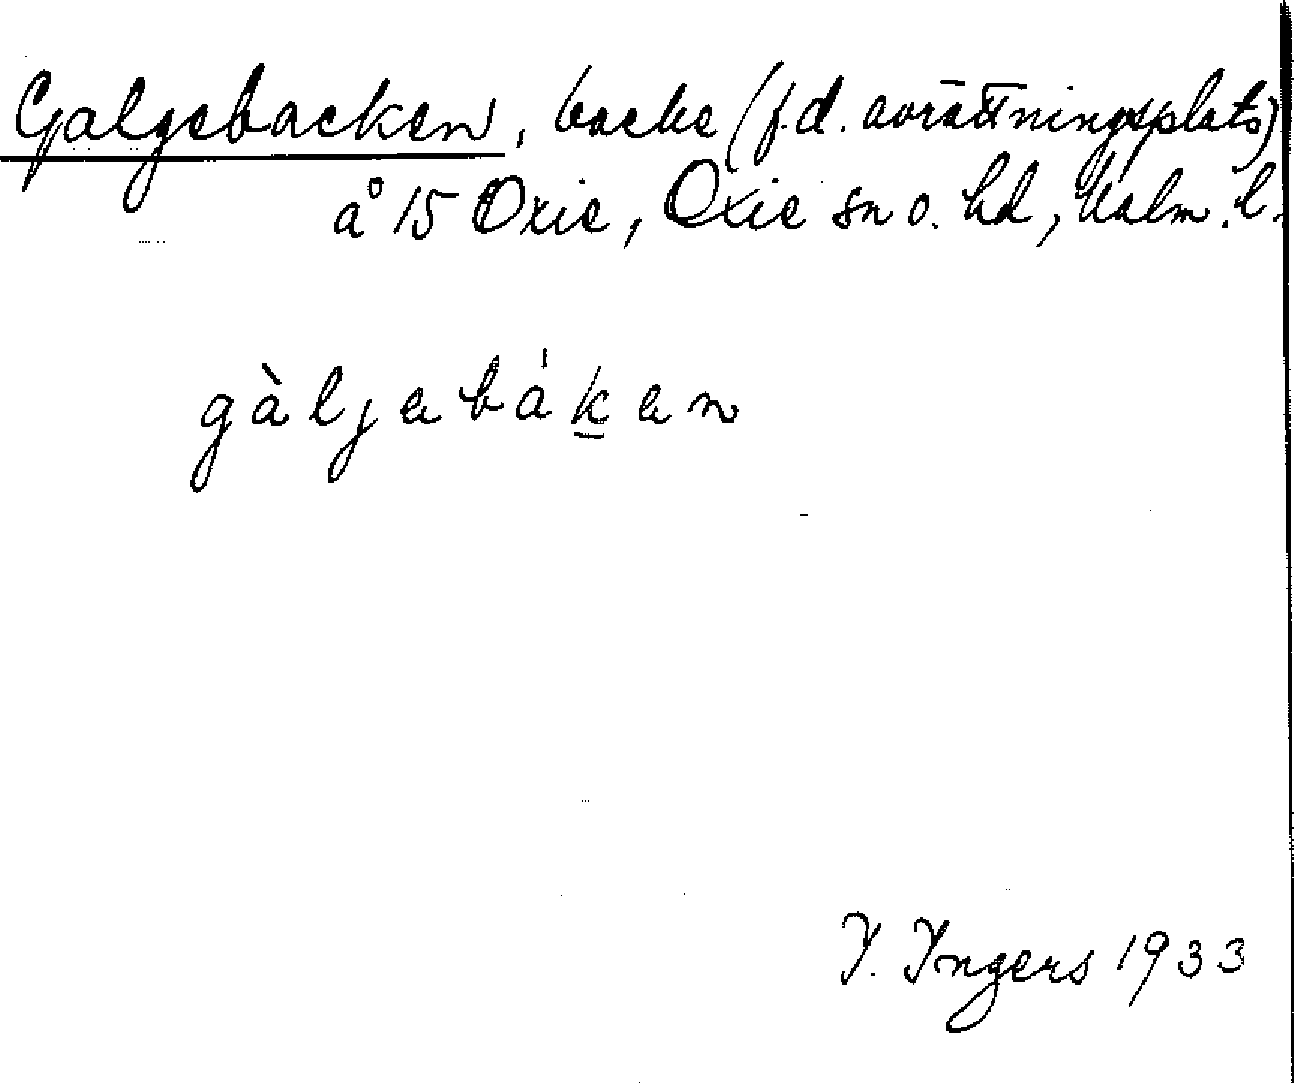 Galgebacken, backe (f.d. avrättningsplats)
å 15 Oxie, Oxie sn o. hd, Malm. l.
gàljabákan
I. Ingers 1933